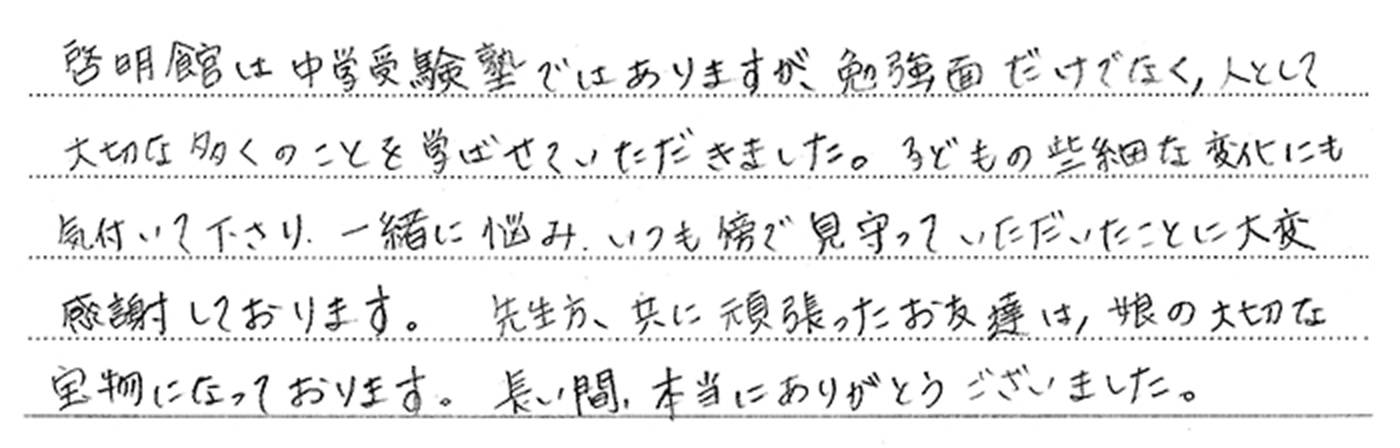 啓明館は中学受験塾ではありますが、勉強面だけでなく、人として
大切な多くのことを学ばせていただきました。子どもの些細な変化にも
気付いて下さり、一緒に悩み、いつも傍で見守っていただいたことに大変
感謝しております。 先生方、共に頑張ったお友達は、娘の大切な
宝物になっております。長い間、本当にありがとうございました。